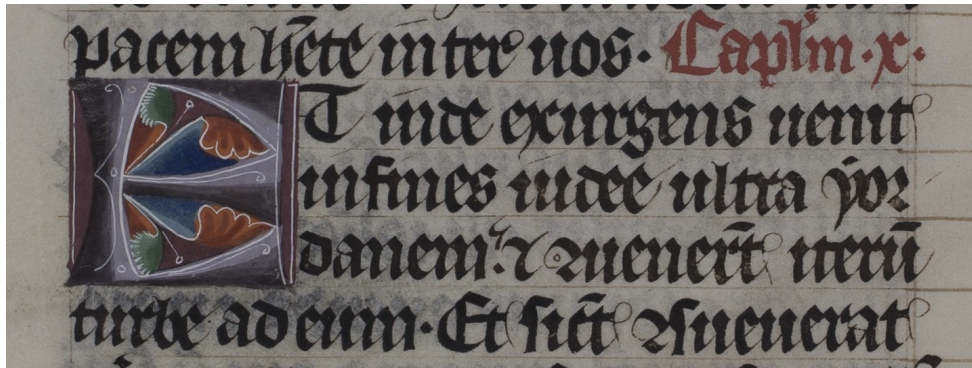 pacem hēte inter uos. Caplm̄.x.
ET inde exurgens uenit
infines iudee ultra yor
danem. ⁊ ꝯuenert̄ iterū
turbe ad eum. Et sict̄ ꝯsueuerat